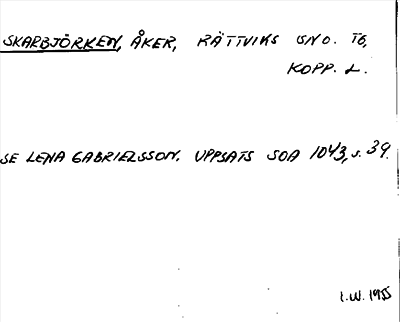 SKARBJÖRKEN, ÅKER, RÄTTVIKS GND. TG,
KOPP. L.
SE LENA GABRIELSSON. UPPSATS SOA 1043, s. 39.
I.W. 1955